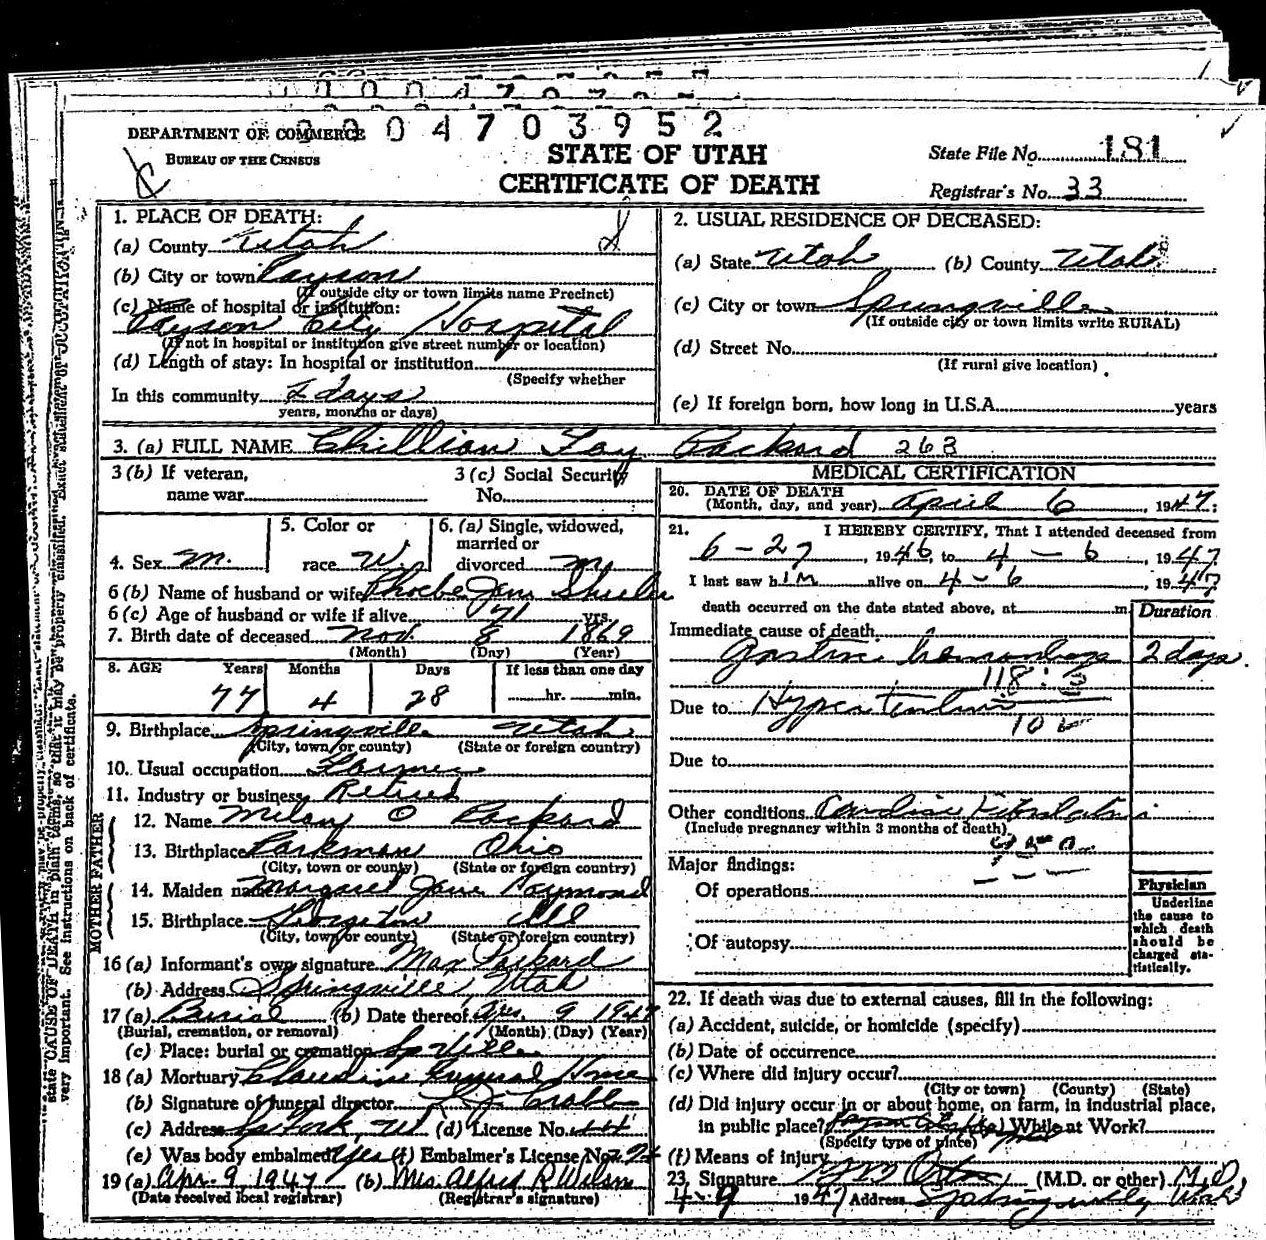 0004703952
DEPARTMENT OF COMMERCE
BUREAU OF THE CENSUS
STATE OF UTAH
CERTIFICATE OF DEATH
State File No. 181
Registrar's No. 33
1. PLACE OF DEATH:
(a) County Utah
(b) City or town Payson
(If outside city or town limits name Precinct)
(c) Name of hospital or institution:
Payson City Hospital
(If not in hospital or institution give street number or location)
(d) Length of stay: In hospital or institution
(Specify whether
In this community 2 days
years, months or days)
2. USUAL RESIDENCE OF DECEASED:
(a) State Utah (b) County Utah
(c) City or town Springville
(If outside city or town limits write RURAL)
(d) Street No.
(If rural give location)
(e) If foreign born, how long in U.S.A. years
3. (a) FULL NAME Chillion Fay Packard 263
3 (b) If veteran,
name war
3 (c) Social Security
No.
4. Sex M.
5. Color or
race W.
6. (a) Single, widowed,
married or
divorced M
6 (b) Name of husband or wife Phoebe Jane
6 (c) Age of husband or wife if alive 71 yrs.
7. Birth date of deceased Nov. 8 1869
(Month) (Day) (Year)
8. AGE Years Months Days If less than one day
77 4 28 hr. min.
9. Birthplace Springville Utah
(City, town or county) (State or foreign country)
10. Usual occupation Farmer
11. Industry or business Retired
FATHER
12. Name Milan O Packard
13. Birthplace Parkman Ohio
(City, town or county) (State or foreign country)
MOTHER
14. Maiden name Margaret Jane Haymond
15. Birthplace Ill
(City, town or county) (State or foreign country)
16 (a) Informant's own signature Max Packard
(b) Address Springville, Utah
17 (a) Burial (b) Date thereof Apr. 9 1947
(Burial, cremation, or removal) (Month) (Day) (Year)
(c) Place: burial or cremation Sp Ville
18 (a) Mortuary Claudin Funeral Home
(b) Signature of funeral director
(c) Address Sp Fork, Ut (d) License No. 44
(e) Was body embalmed? Yes (f) Embalmer's License No.
19 (a) Apr. 9, 1947 (b) Mrs. Alfred R Wilson
(Date received local registrar) (Registrar's signature)
MEDICAL CERTIFICATION
20. DATE OF DEATH
(Month, day, and year) April 6, 1947:
21. I HEREBY CERTIFY, That I attended deceased from
6-27, 1946, to 4-6, 1947
I last saw him alive on 4-6, 1947
death occurred on the date stated above, at m.
Duration
Immediate cause of death
Gastric hemorrhage 2 days.
118:
Due to Hypertension
102
Due to
Other conditions Cardiac Fibrillation
(Include pregnancy within 3 months of death)
Major findings:
Of operations
Of autopsy
Physician
Underline
the cause to
which death
should be
charged sta-
tistically.
22. If death was due to external causes, fill in the following:
(a) Accident, suicide, or homicide (specify)
(b) Date of occurrence
(c) Where did injury occur?
(City or town) (County) (State)
(d) Did injury occur in or about home, on farm, in industrial place,
in public place? (e) While at Work?
(Specify type of place)
(f) Means of injury
23. Signature (M.D. or other) M.D
4-9 1947 Address Springville, Utah
state CAUSE OF DEATH in plain terms, so that it may be properly classified. Exact statement of OCCUPATION is
very important. See instructions on back of certificate.